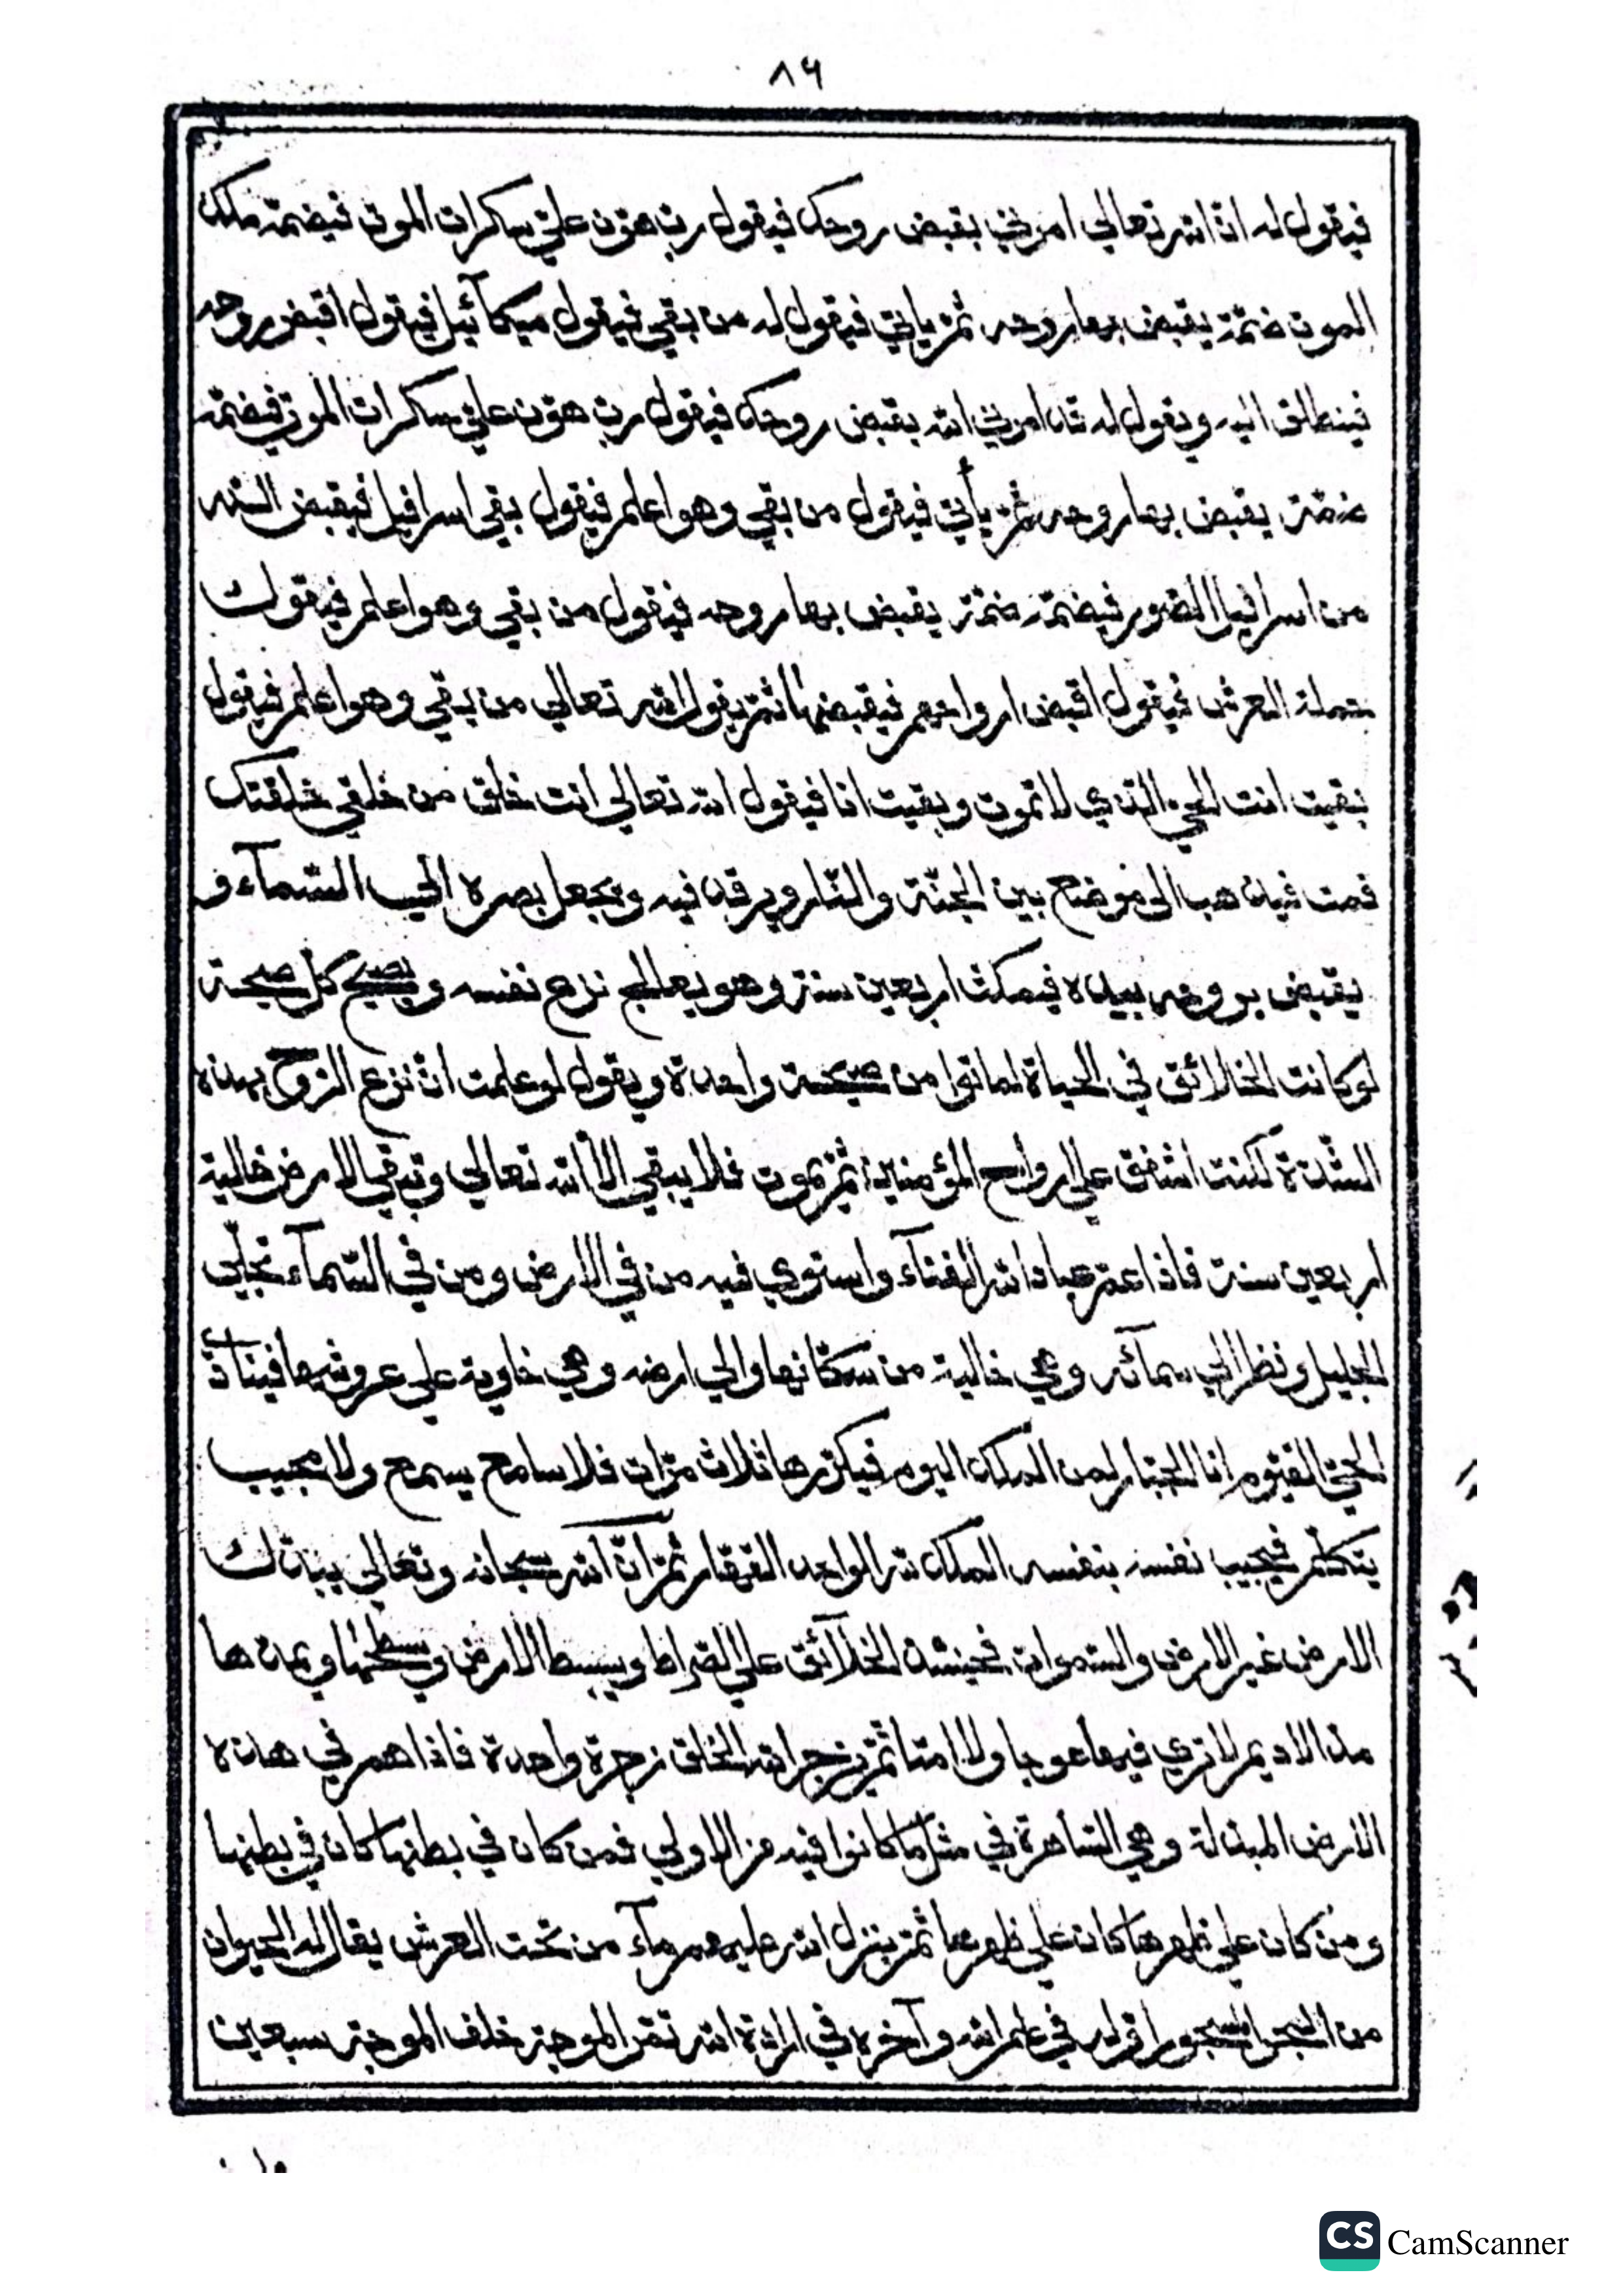 ٨٩
فيقول له ان الله تعالي امرني بقبض روحك فيقول رب هون علي سكرات الموت فيضمه ملك
الموت ضمة يقبض بها روحه ثم ياتي فيقول له من بقي فيقول ميكآئيل فيقول اقبض روحه
فينطلق اليه ويقول له قد امرني الله بقبض روحك فيقول رب هون علي سكرات الموت فيضمه
ضمة يقبض بها روحه ثم يأتي فيقول من بقي وهو اعلم فيقول بقي اسرافيل فيقبض الله
من اسرافيل الصور فيضمه ضمة يقبض بها روحه فيقول من بقي وهو اعلم فيقول
حملة العرش فيقول اقبض ارواحهم فيقبضها ثم يقول الله تعالي من بقي وهو اعلم فيقول
بقيت انت الحي الذي لا تموت وبقيت انا فيقول الله تعالي انت خلق من خلقي خلقتك
فمت فيذهب الى موضع بين الجنة والنار ويرقد فيه ويجعل بصره الي السمآء و
يقبض بروحه بيده فيمكث اربعين سنة وهو يعالج نزع نفسه ويصيح كل صيحة
لو كانت الخلائق في الحياة لماتوا من صيحة واحدة ويقول لو علمت ان نزع الروح بهذه
الشدة لكنت اشفق علي ارواح المؤمنين ثم يموت فلا يبقي الا الله تعالي وتبقي الارض خالية
اربعين سنة فاذا عم عباد الله الفنآء واستوي فيه من في الارض ومن في السمآء تجلي
الجليل ونظر الي سمآئه وهي خالية من سكانها والي ارضه وهي خاوية علي عروشها فينادي
الحي القيوم انا الجبار لمن الملك اليوم فيكررها ثلاث مرات فلا سامع يسمع ولا مجيب
يتكلم فيجيب نفسه بنفسه الملك لله الواحد القهار ثم ان الله سبحانه وتعالي يبدل
الارض غير الارض والسموات فحينئذ الخلآئق علي الصراط ويبسط الارض ويسطحها ويمدها
مد الاديم لا تري فيها عوجا ولا امتا ثم يزجر الله الخلق زجرة واحدة فاذا هم في هذه
الارض المبدلة وهي الساهرة في مثل ما كانوا فيه من الاولي فمن كان في بطنها كان في بطنها
ومن كان علي ظهرها كان علي ظهرها ثم ينزل الله عليهم مآء من تحت العرش يقال له الحيوان
من البحر المسجور اوله في علم الله وآخره في ارادة الله تقر الموجة خلف الموجة سبعين
CS CamScanner